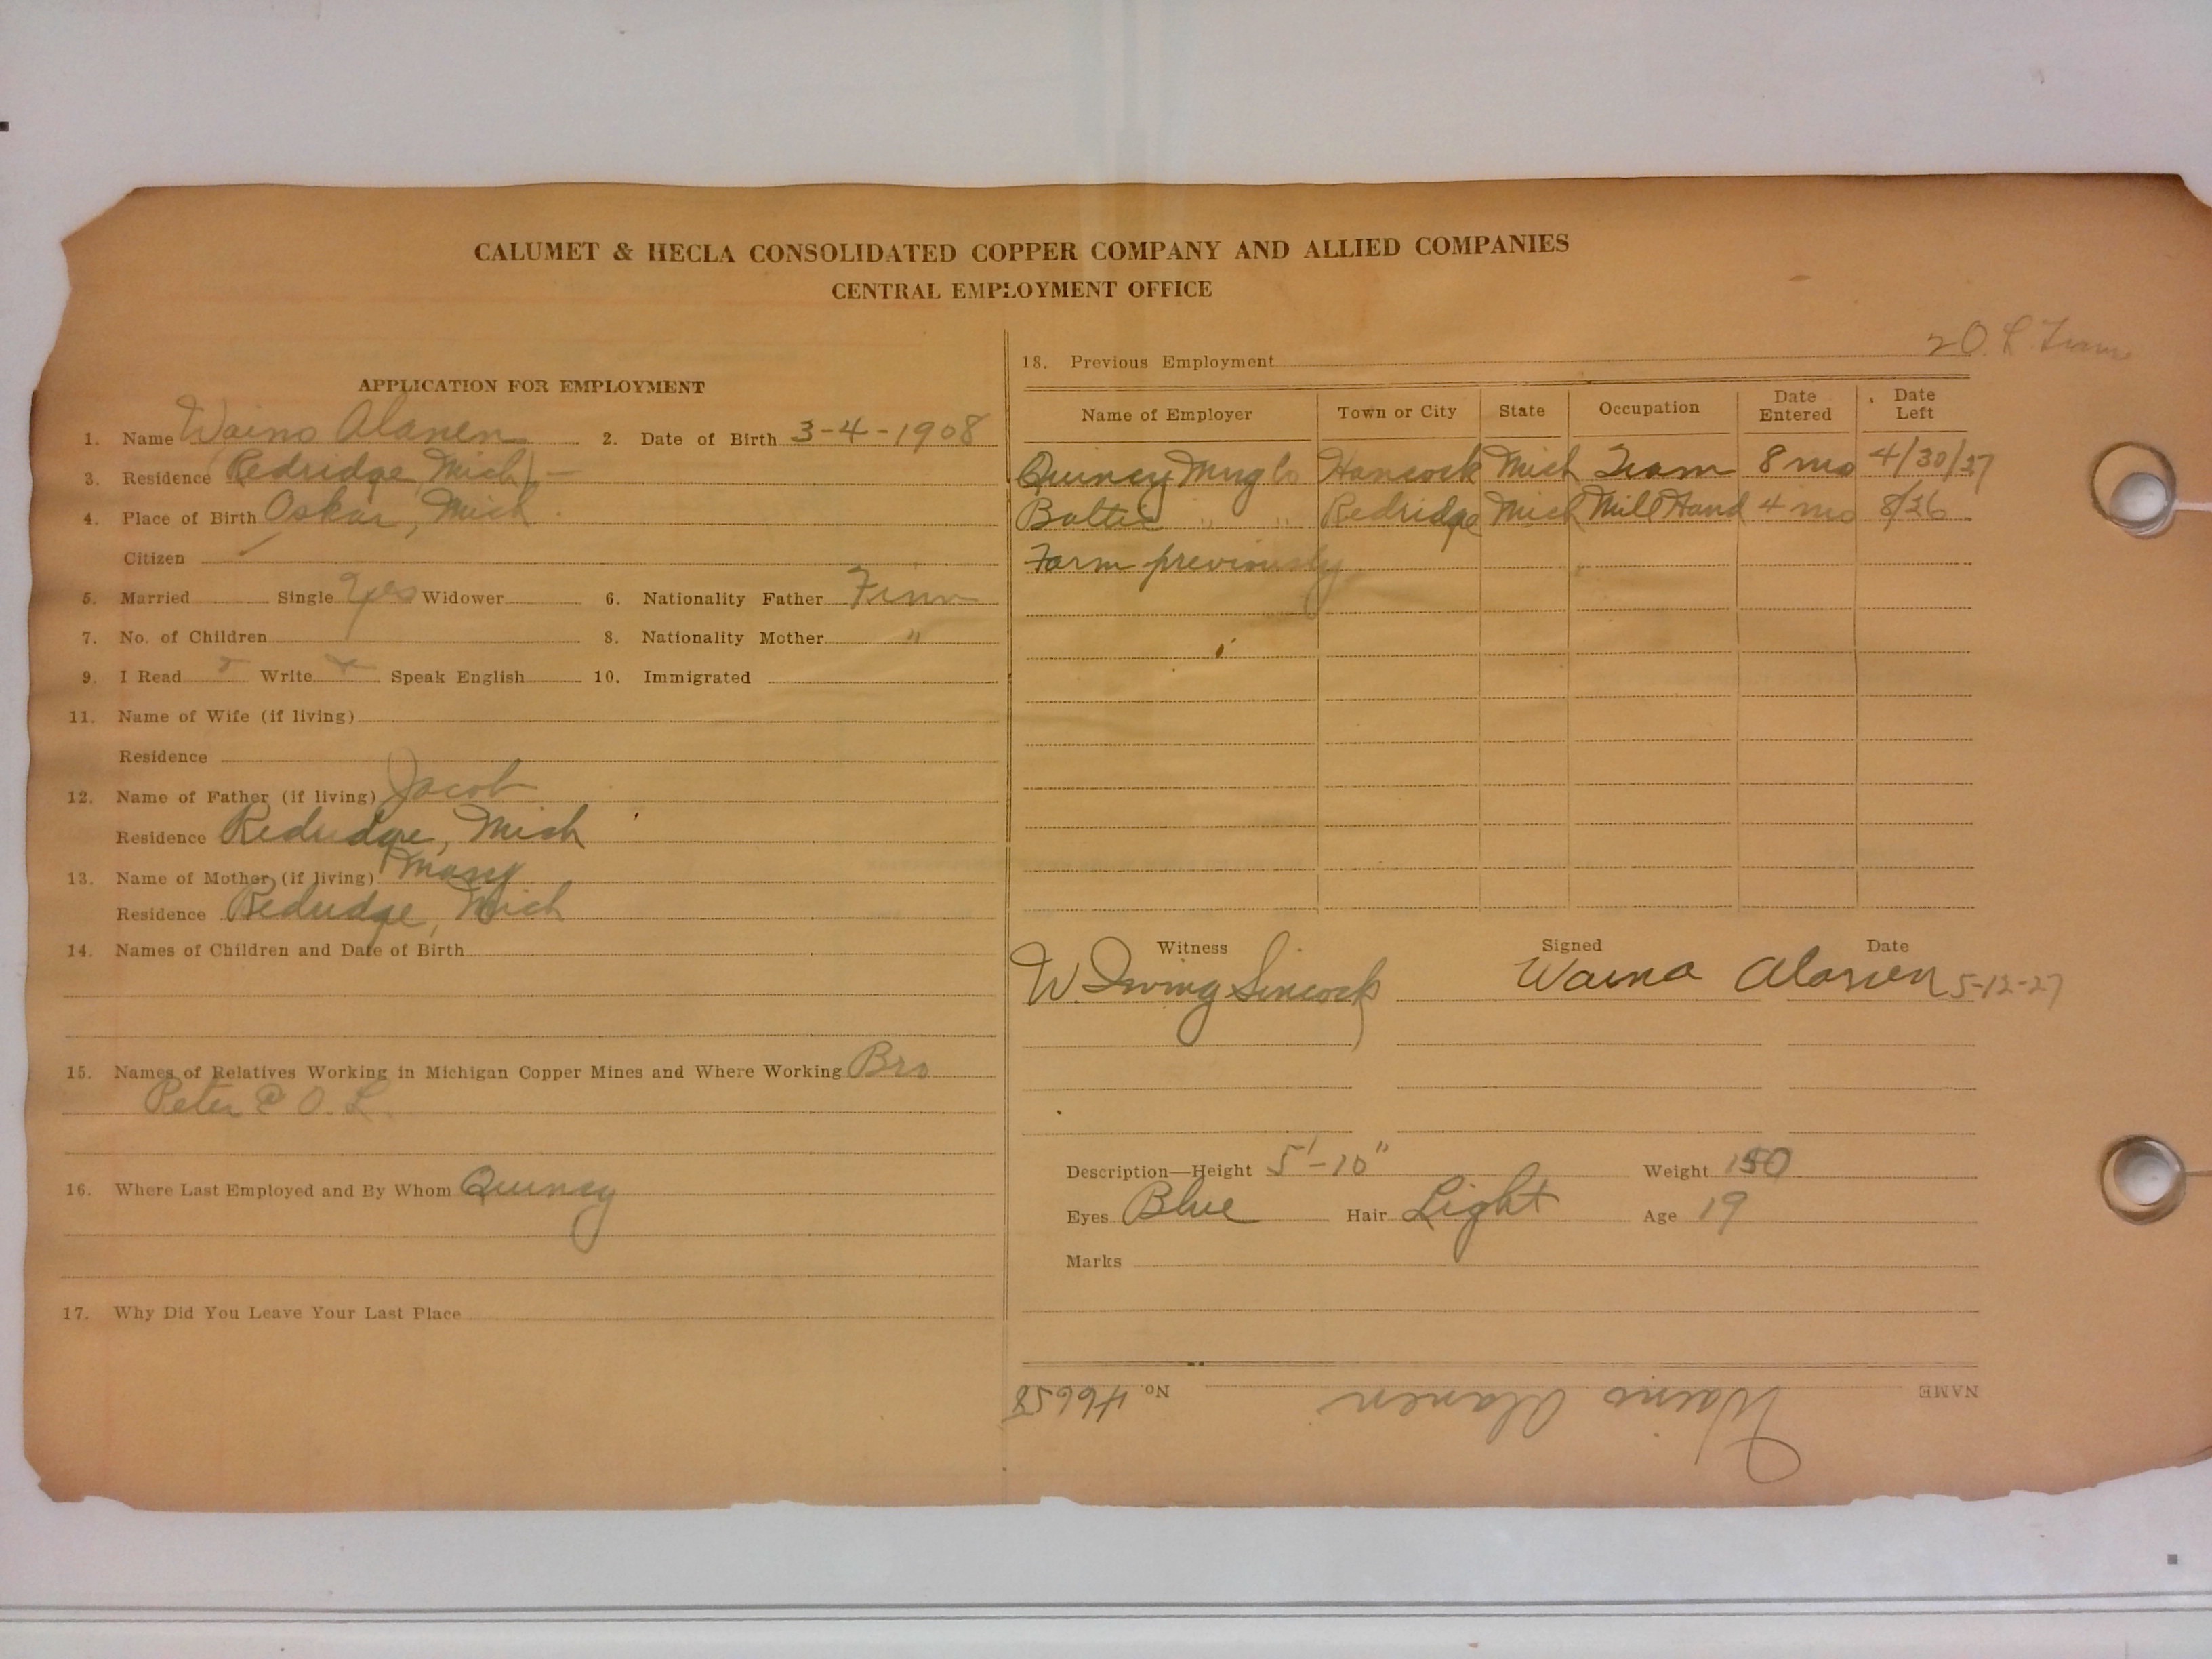 CALUMET & HECLA CONSOLIDATED COPPER COMPANY AND ALLIED COMPANIES
CENTRAL EMPLOYMENT OFFICE
APPLICATION FOR EMPLOYMENT
1. Name Waino Alanen 2. Date of Birth 3-4-1908
3. Residence (Redridge, Mich) —
4. Place of Birth Oskar, Mich.
Citizen ✓
5. Married Single Yes Widower 6. Nationality Father Finn
7. No. of Children 8. Nationality Mother "
9. I Read Write Speak English 10. Immigrated
11. Name of Wife (if living)
Residence
12. Name of Father (if living) Jacob
Residence Redridge, Mich
13. Name of Mother (if living) Mary
Residence Redridge, Mich
14. Names of Children and Date of Birth
15. Names of Relatives Working in Michigan Copper Mines and Where Working Bro
Peter @ O. L.
16. Where Last Employed and By Whom Quincy
17. Why Did You Leave Your Last Place
20. L. Tram
18. Previous Employment
Name of Employer Town or City State Occupation Date Entered Date Left
Quincy Mng Co Hancock Mich Tram 8 mo 4/30/27
Baltic " " Redridge Mich Mill Hand 4 mo 8/26
Farm previously
Witness Signed Date
W. Irving Sincock Waino Alanen 5-12-27
Description—Height 5'-10" Weight 150
Eyes Blue Hair Light Age 19
Marks
NAME Waino Alanen No. 46658